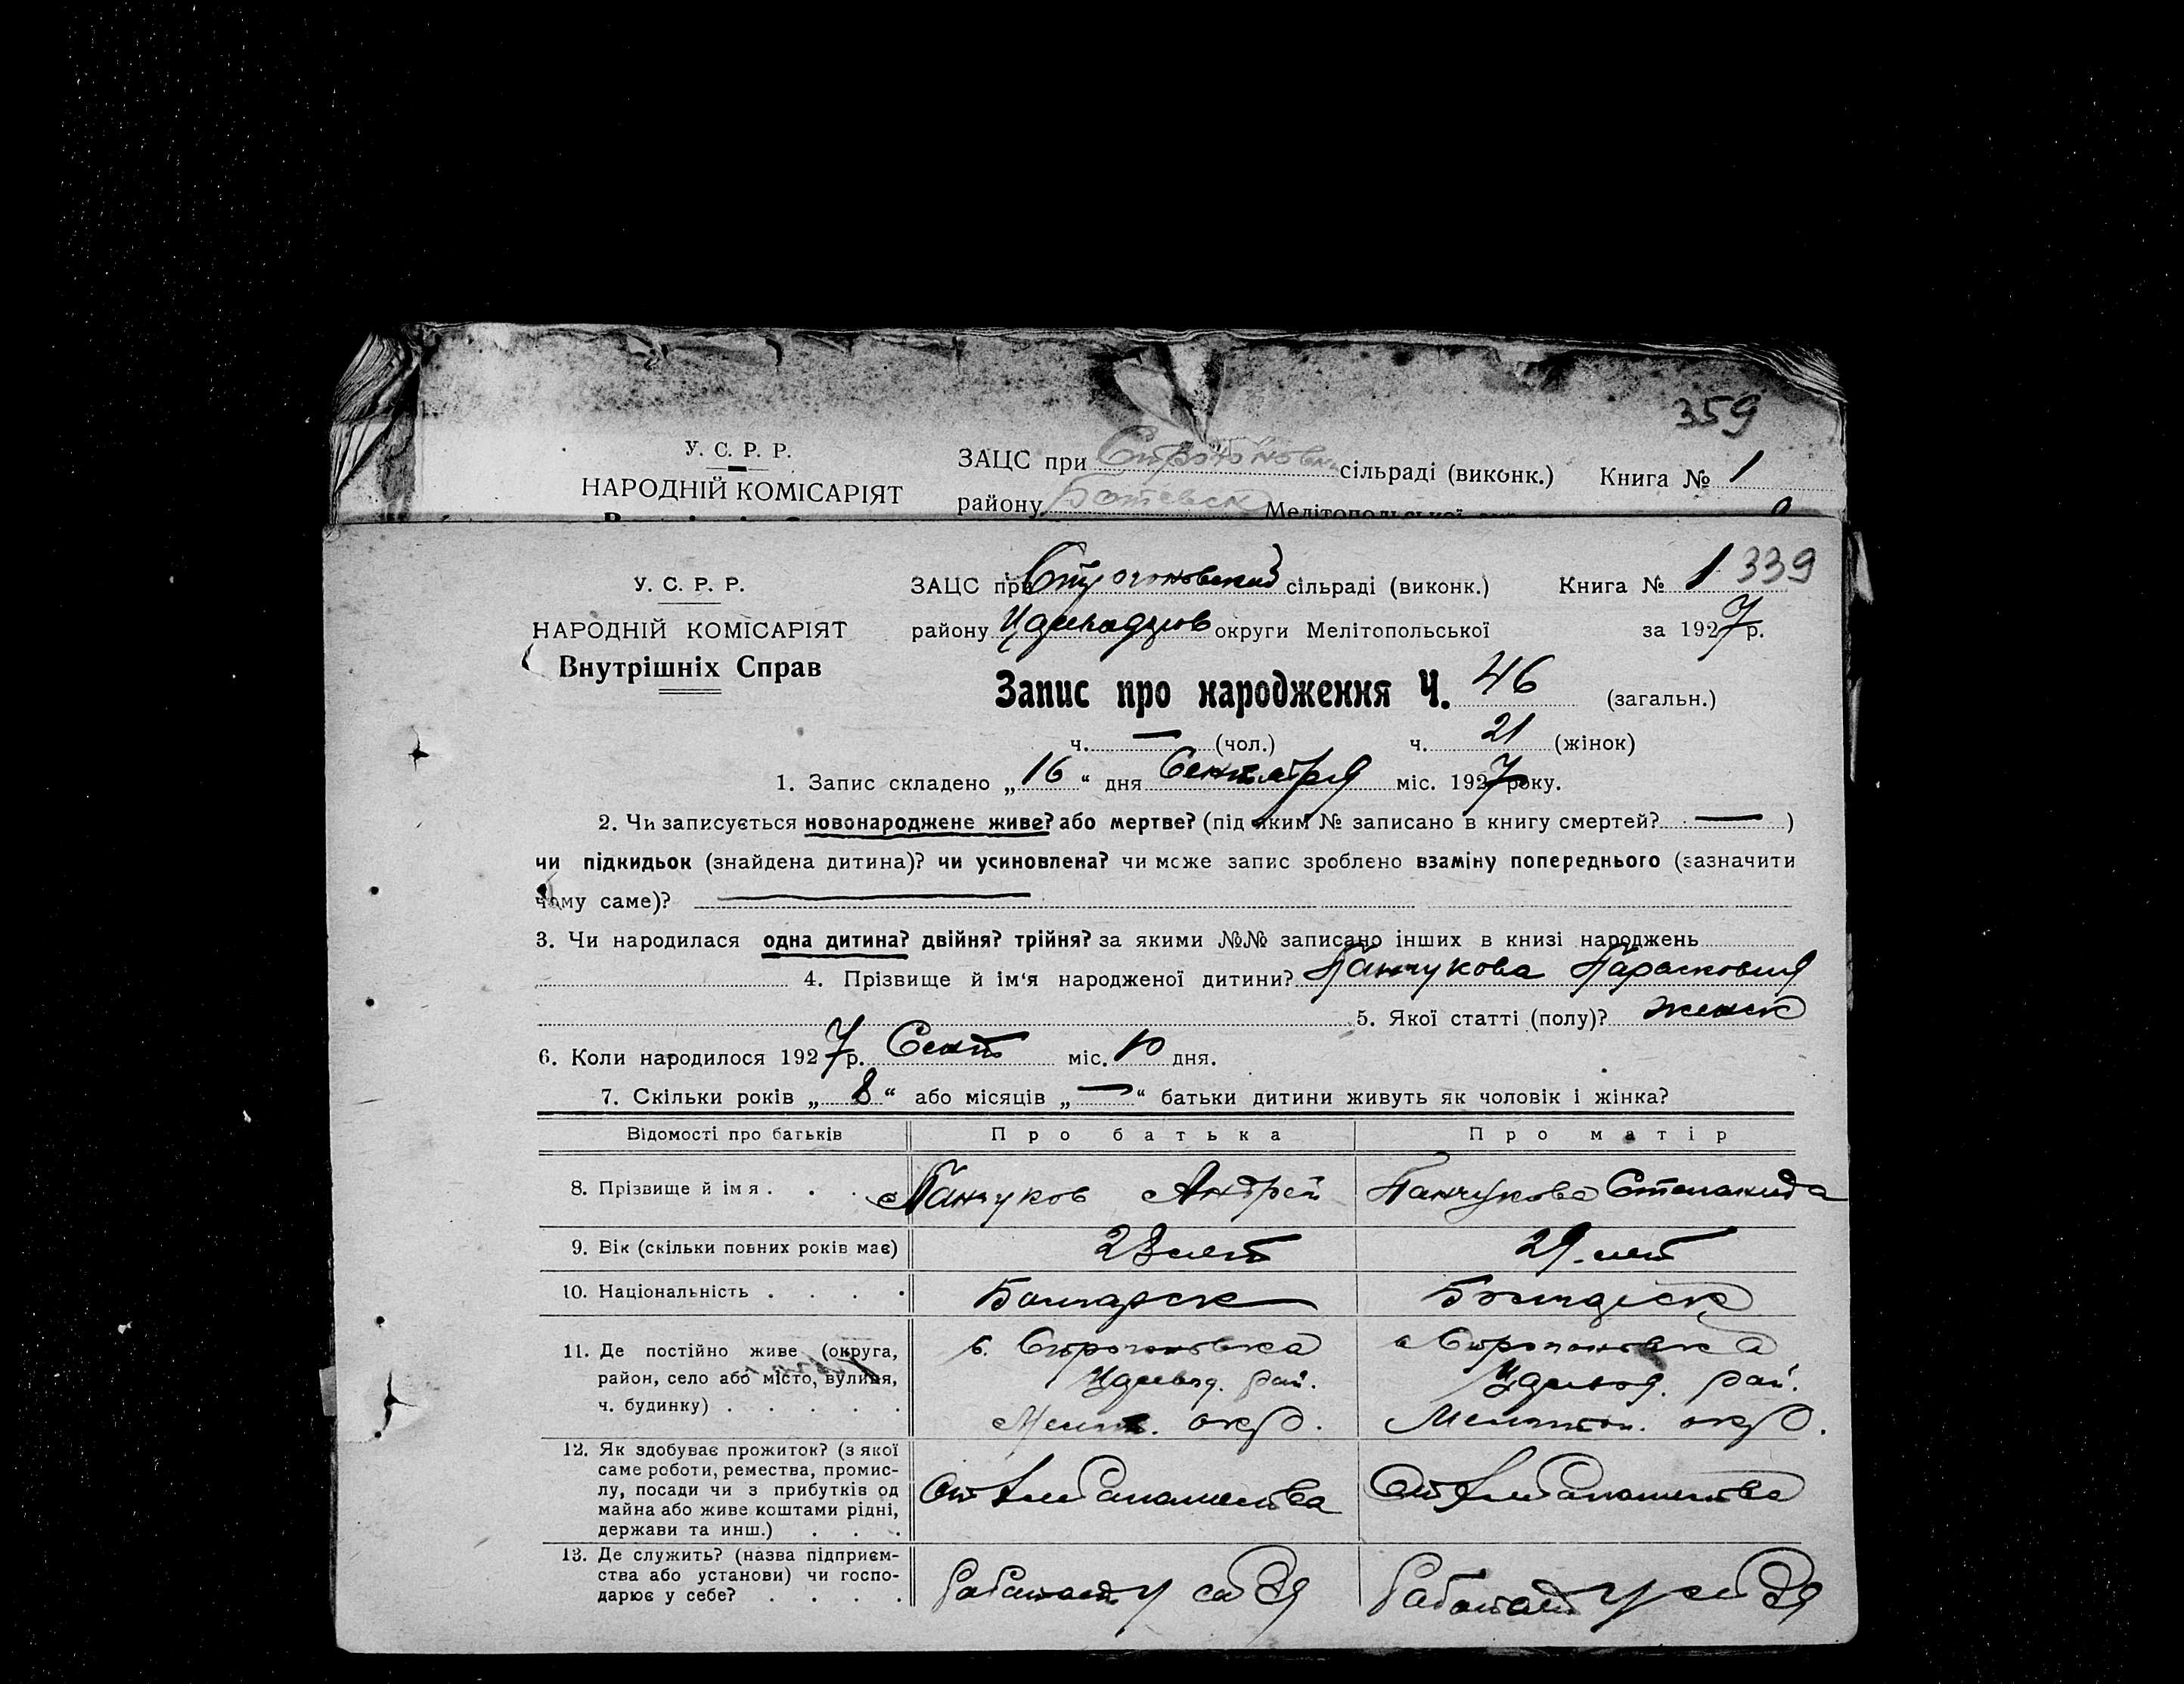 359
У. С. Р. Р.
ЗАЦС при Строгоновск сільраді (виконк.) Книга № 1
НАРОДНІЙ КОМІСАРІЯТ
району Ботевск Мелітопольської
339
У. С. Р. Р.
ЗАЦС при Строгоновский сільраді (виконк.) Книга № 1
НАРОДНІЙ КОМІСАРІЯТ
району округи Мелітопольської за 1927 р.
Внутрішніх Справ
Запис про народження Ч. 46 (загальн.)
ч. — (чол.) ч. 21 (жінок)
1. Запис складено „16“ дня Сентября міс. 1927 року.
2. Чи записується новонароджене живе? або мертве? (під яким № записано в книгу смертей? — )
чи підкидьок (знайдена дитина)? чи усиновлена? чи може запис зроблено взаміну попереднього (зазначити
чому саме)? —
3. Чи народилася одна дитина? двійня? трійня? за якими №№ записано інших в книзі народжень
4. Прізвище й ім‘я народженої дитини? Панчукова Парасковия
5. Якої статті (полу)? женск
6. Коли народилося 1927 р. Сент міс. 10 дня.
7. Скільки років „8“ або місяців „—“ батьки дитини живуть як чоловік і жінка?
Відомості про батьків Про батька Про матір
8. Прізвище й імя . . . Панчуков Андрей Панчукова Степанида
9. Вік (скільки повних років має) 28 лет 29 лет
10. Національність . . . . Болгарск Болгарск
11. Де постійно живе (округа, с. Строгоновка с Строгоновка
район, село або місто, вулиця, рай. рай.
ч. будинку) . . . . . Мелит. окр. Мелитоп. окр.
12. Як здобуває прожиток? (з якої
саме роботи, ремества, промис-
лу, посади чи з прибутків од От хлебопашества От хлебопашества
майна або живе коштами рідні,
держави та инш.) . . .
13. Де служить? (назва підприєм-
ства або установи) чи госпо- Работает у себя Работает у себя
дарює у себе? . . . .